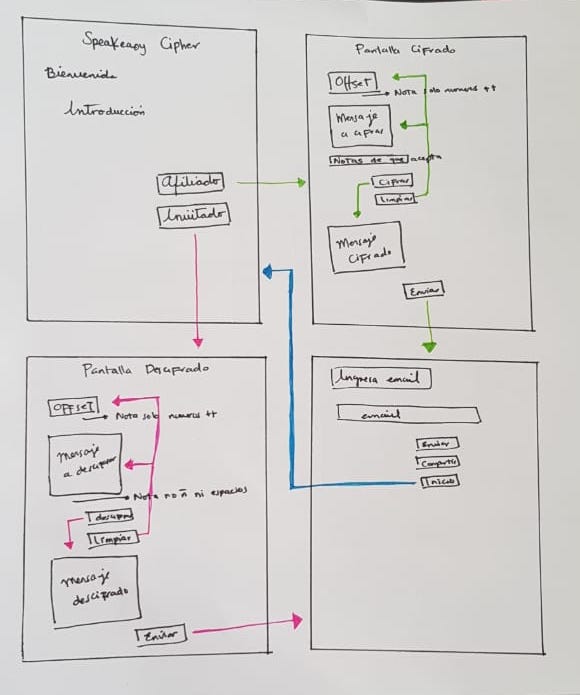 Speakeasy Cipher
Bienvenida
Introducción
Afiliado
Invitado
Pantalla Cifrado
Offset
Nota solo numeros ++
Mensaje
a cifrar
Notas de que acepta
Cifrar
Limpiar
Mensaje
Cifrado
Enviar
Pantalla Descifrado
OFFSET
Nota solo numeros ++
Mensaje
a descifrar
Nota no ñ ni espacios
Limpiar
mensaje
descifrado
Enviar
Ingresa email
email
Enviar
Compartir
Inicio